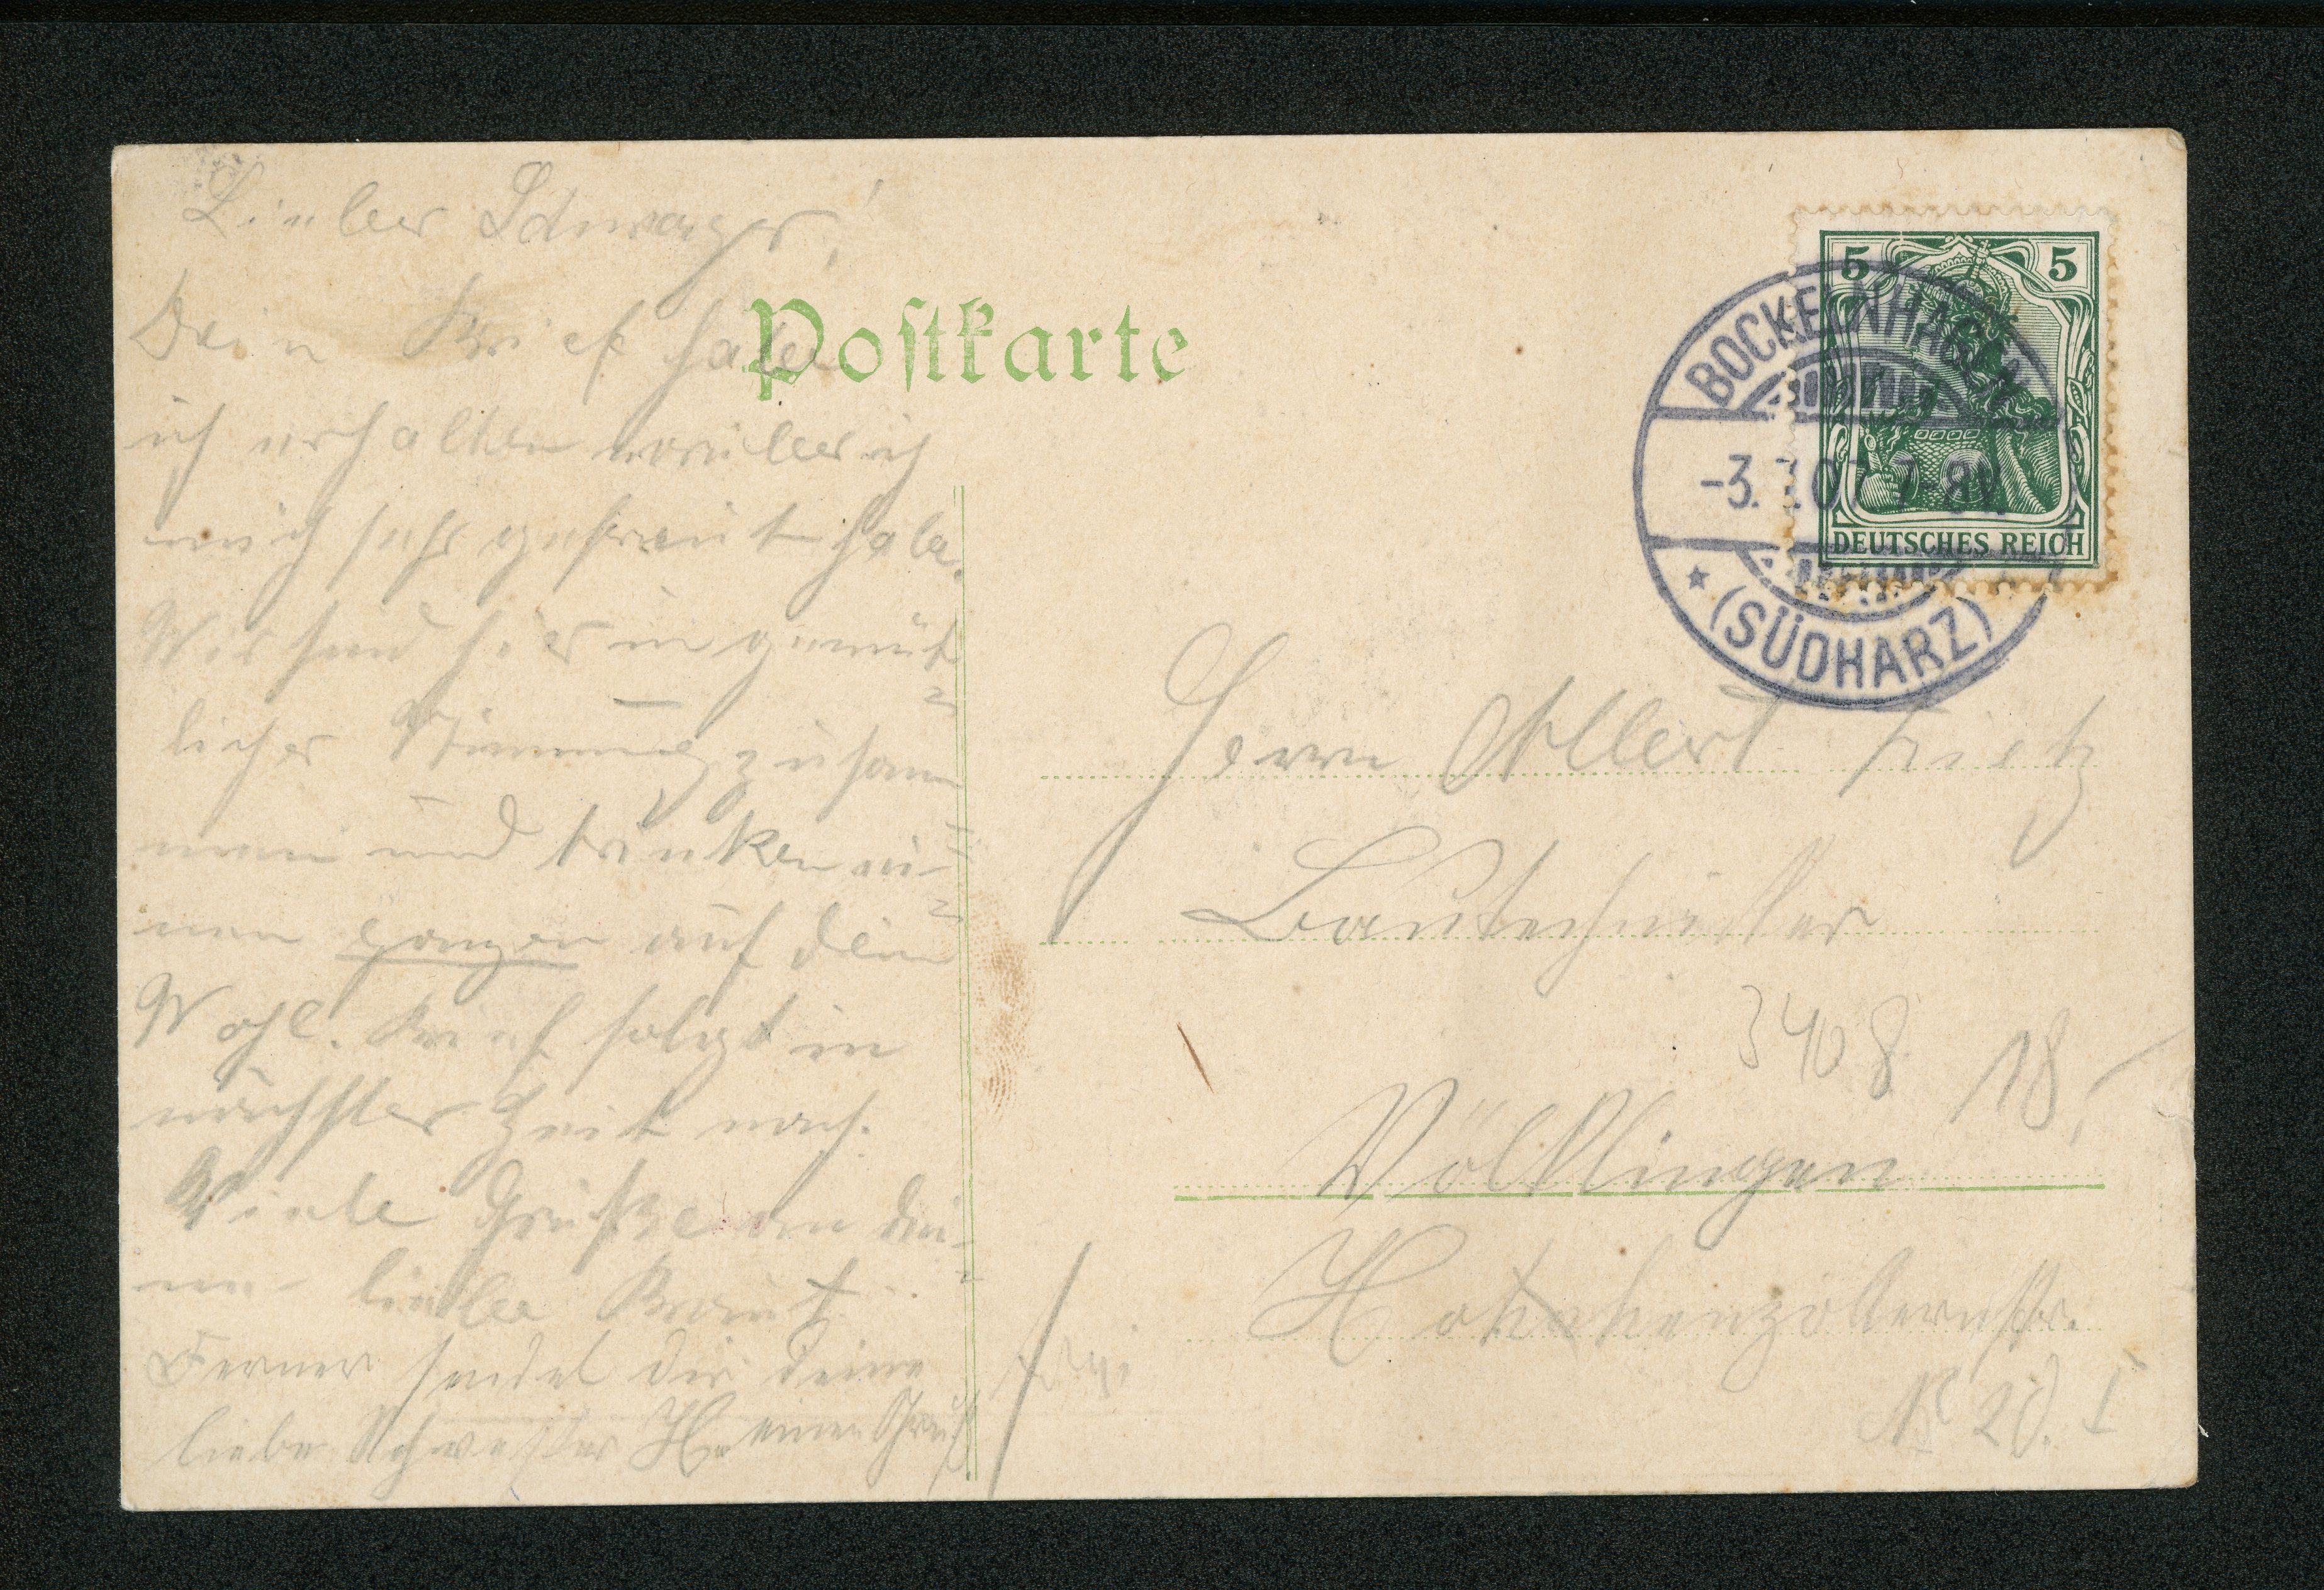 Lieber Schwager!
Dein Brief habe
ich erhalten worüber ich
mich sehr gefreut habe.
Wir sind hier in gemüt-
licher Stimmung zusam-
men und trinken ei-
nen ganzen auf dein
Wohl. Brief folgt in
nächster Zeit nach.
Viele Grüße an dei-
ne liebe Braut.
Ferner sendet dir deine
liebe Schwester H. einen Gruß
Postkarte
5 5
DEUTSCHES REICH
BOCKELNHAGEN
-3. 7-8N.
* (SÜDHARZ)
Herrn Albert
Bautechniker
3408 18,-
Völklingen
Hohenzollernstr.
No 20. I